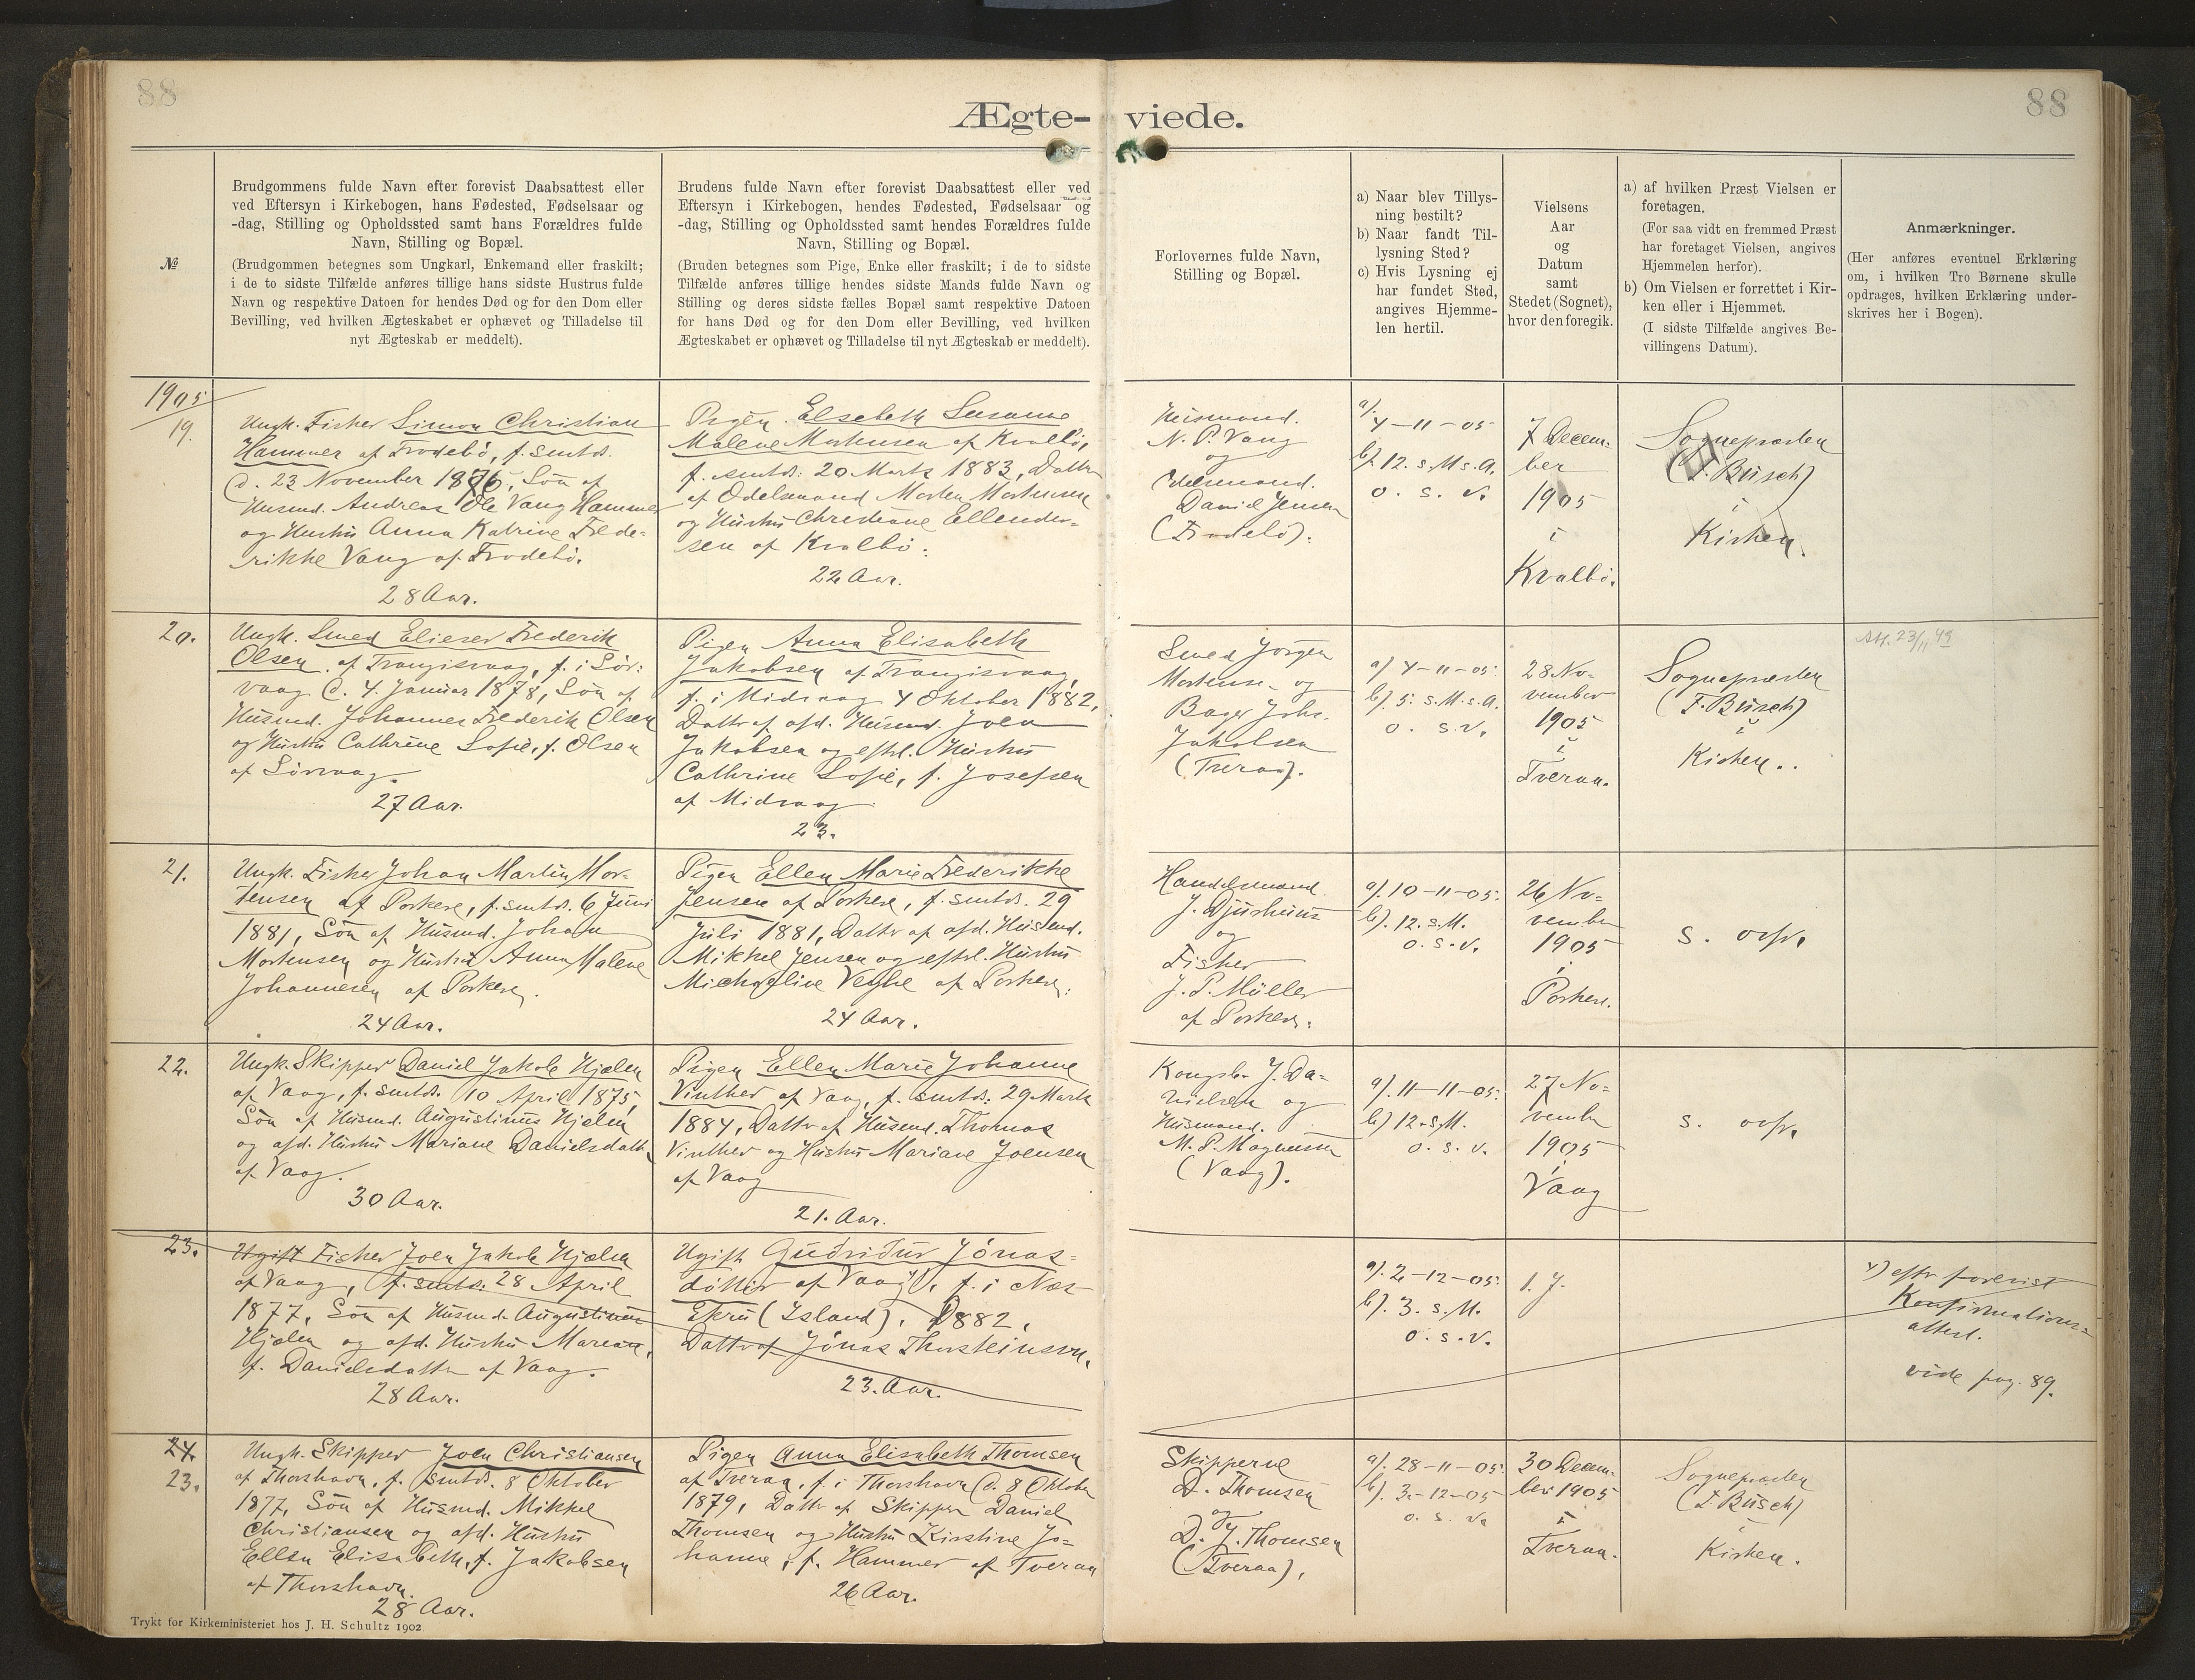 88
88
Ægte- viede.
№
Brudgommens fulde Navn efter forevist Daabsattest eller
ved Eftersyn i Kirkebogen, hans Fødested, Fødselsaar og
-dag, Stilling og Opholdssted samt hans Forældres fulde
Navn, Stilling og Bopæl.
(Brudgommen betegnes som Ungkarl, Enkemand eller fraskilt;
i de to sidste Tilfælde anføres tillige hans sidste Hustrus fulde
Navn og respektive Datoen for hendes Død og for den Dom eller
Bevilling, ved hvilken Ægteskabet er ophævet og Tilladelse til
nyt Ægteskab er meddelt).
Brudens fulde Navn efter forevist Daabsattest eller ved
Eftersyn i Kirkebogen, hendes Fødested, Fødselsaar og
-dag, Stilling og Opholdssted samt hendes Forældres fulde
Navn, Stilling og Bopæl.
(Bruden betegnes som Pige, Enke eller fraskilt; i de to sidste
Tilfælde anføres tillige hendes sidste Mands fulde Navn og
Stilling og deres sidste fælles Bopæl samt respektive Datoen
for hans Død og for den Dom eller Bevilling, ved hvilken
Ægteskabet er ophævet og Tilladelse til nyt Ægteskab er meddelt).
Forlovernes fulde Navn,
Stilling og Bopæl.
a) Naar blev Tillys-
ning bestilt?
b) Naar fandt Til-
lysning Sted?
c) Hvis Lysning ej
har fundet Sted,
angives Hjemme-
len hertil.
Vielsens
Aar
og
Datum
samt
Stedet (Sognet),
hvor den foregik.
a) af hvilken Præst Vielsen er
foretagen.
(For saa vidt en fremmed Præst
har foretaget Vielsen, angives
Hjemmelen herfor).
b) Om Vielsen er forrettet i Kir-
ken eller i Hjemmet.
(I sidste Tilfælde angives Be-
villingens Datum).
Anmærkninger.
(Her anføres eventuel Erklæring
om, i hvilken Tro Børnene skulle
opdrages, hvilken Erklæring under-
skrives her i Bogen).
1905
19.
Ungk. Fisker Simon Christian
Hammer af Frodebö, f. smtds.
d. 23 November 1876, Sön af
Husmd. Andreas Ole Vang Hammer
og Hustru Anna Katrine Frede-
rikke Vang af Frodebö.
28 Aar.
Pigen Elsebeth Susanne
Malene Mortensen af Kvalbö,
f. smtds. 20 Marts 1883, Datter
af Odelsmand Morten Mortensen
og Hustru Christiane Ellender-
sen af Kvalbö.
22 Aar.
Husmand.
N. P. Vang
og
Odelsmand.
Daniel Jensen
(Frodebö).
a). 4-11-05
b). 12. s. M. s. A.
o. s. v.
7 Decem-
ber
1905
i
Kvalbö.
Sognepræsten
(F. Büsch)
i
Kirken.
20.
Ungk. Smed Elieser Frederik
Olsen af Trangisvaag, f. i Sör-
vaag d. 4. Januar 1878, Sön af
Husmd. Johannes Frederik Olsen
og Hustru Cathrine Sofie, f. Olsen
af Sörvaag.
27 Aar.
Pigen Anna Elisabeth
Jakobsen af Trangisvaag,
f. i Midvaag 4 Oktober 1882,
Datter af afd. Husmd. Joen
Jakobsen og eftrl. Hustru
Cathrine Sofie, f. Josefsen
af Midvaag.
23.
Smed Jörgen
Mortensen og
Bager Johs.
Jakobsen
(Tveraa).
a) 4-11-05
b) 5. s. M. s. A.
o. s. v.
28 No-
vember
1905
i
Tveraa.
Sognepræsten
(F. Büsch)
i
Kirken.
Att. 23/11 49
21.
Ungk. Fisker Johan Martin Mor-
tensen af Porkere, f. smtds. 6 Juni
1881, Sön af Husmd. Johan
Mortensen og Hustru Anna Malene
Johannesen af Porkere.
24 Aar.
Pigen Ellen Marie Frederikke
Jensen af Porkere, f. smtds. 29
Juli 1881, Datter af afd. Husmd.
Mikkel Jensen og eftrl. Hustru
Michaeline Veyhe af Porkere.
24 Aar.
Handelsmand
J. Djurhuus
og
Fisker
J. P. Müller
af Porkere.
a). 10-11-05.
b). 12. s. M.
o. s. v.
26 No-
vember
1905
i
Porkere.
s. ovfr.
22.
Ungk. Skipper Daniel Jakob Hjælm
af Vaag, f. smtds. 10 April 1875,
Sön af Husmd. Augustinus Hjelm
og afd. Hustru Mariane Danielsdatter
af Vaag.
30 Aar.
Pigen Ellen Marie Johanne
Vinther af Vaag, f. smtds. 29 Marts
1884, Datter af Husmd. Thomas
Vinther og Hustru Mariane Joensen
af Vaag
21. Aar.
Kongsb. J. Da-
nielsen og
Husmand.
M. P. Magnussen
(Vaag).
a). 11-11-05.
b) 12. s. M.
o. s. v.
27 No-
vember
1905
i
Vaag
s. ovfr.
23.
Ugift Fisker Joen Jakob Hjælm
af Vaag, f. smtds. 28 April
1877, Sön af Husmd. Augustinus
Hjælm og afd. Hustru Mariane,
f. Danielsdatter af Vaag.
28 Aar.
Ugift Guðriður Jónas-
dóttir af Vaag, f. i Næs
Ekru (Island), 1882,
Datter af Jónas Thorsteinsson.
23. Aar.
a). 2-12-05.
b). 3. s. M.
o. s. v.
1. J.
x) eftr forevist
Konfirmations-
attest.
vide pag. 89.
24.
23.
Ungk. Skipper Joen Christiansen
af Thorshavn, f. smtds. 8 Oktober
1877, Sön af Husmd. Mikkel
Christiansen og afd. Hustru
Ellen Elisabeth, f. Jakobsen
af Thorshavn.
28 Aar.
Pigen Anna Elisabeth Thomsen
af Tveraa, f. i Thorshavn d. 8 Oktober
1879, Datter af Skipper Daniel
Thomsen og Hustru Kirstine Jo-
hanne, f. Hammer af Tveraa
26 Aar.
Skipperne
D. Thomsen
og
D. J. Thomsen
(Tveraa),
a). 28-11-05.
b). 3-12-05
o. s. v.
30 Decem-
ber 1905
i
Tveraa.
Sognepræsten
(F. Büsch)
i
Kirken.
Trykt for Kirkeministeriet hos J. H. Schultz 1902